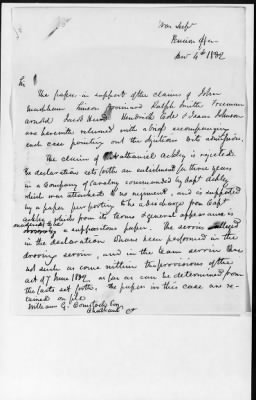 War Dept
Pension Office
Nov 4th 1832
Sir
The papers in support of the claims of John
Simeon Ralph Smith Freeman
Arnold Jacob Hendrick Code & Isaac Johnson
are herewith returned with a brief accompanying
each case pointing out the objections to its admission.
The claim of Nathaniel Ackley is rejected.
The declaration sets forth an enlistment for three years
in a Company of Cavalry commanded by Capt Ackley
which was attached to no regiment, and is supported
by a paper purporting to be a discharge from Capt
Ackley which from its terms & general appearance is
a supposititious paper. The service alleged
in the declaration to have been performed in the
service, and in the team service are
not such as come within the provisions of the
act of 7 June 1832, as far as can be determined from
the facts set forth. The papers in this case are re-
tained on file
William G. Comstock Esq.
Chatham Ct